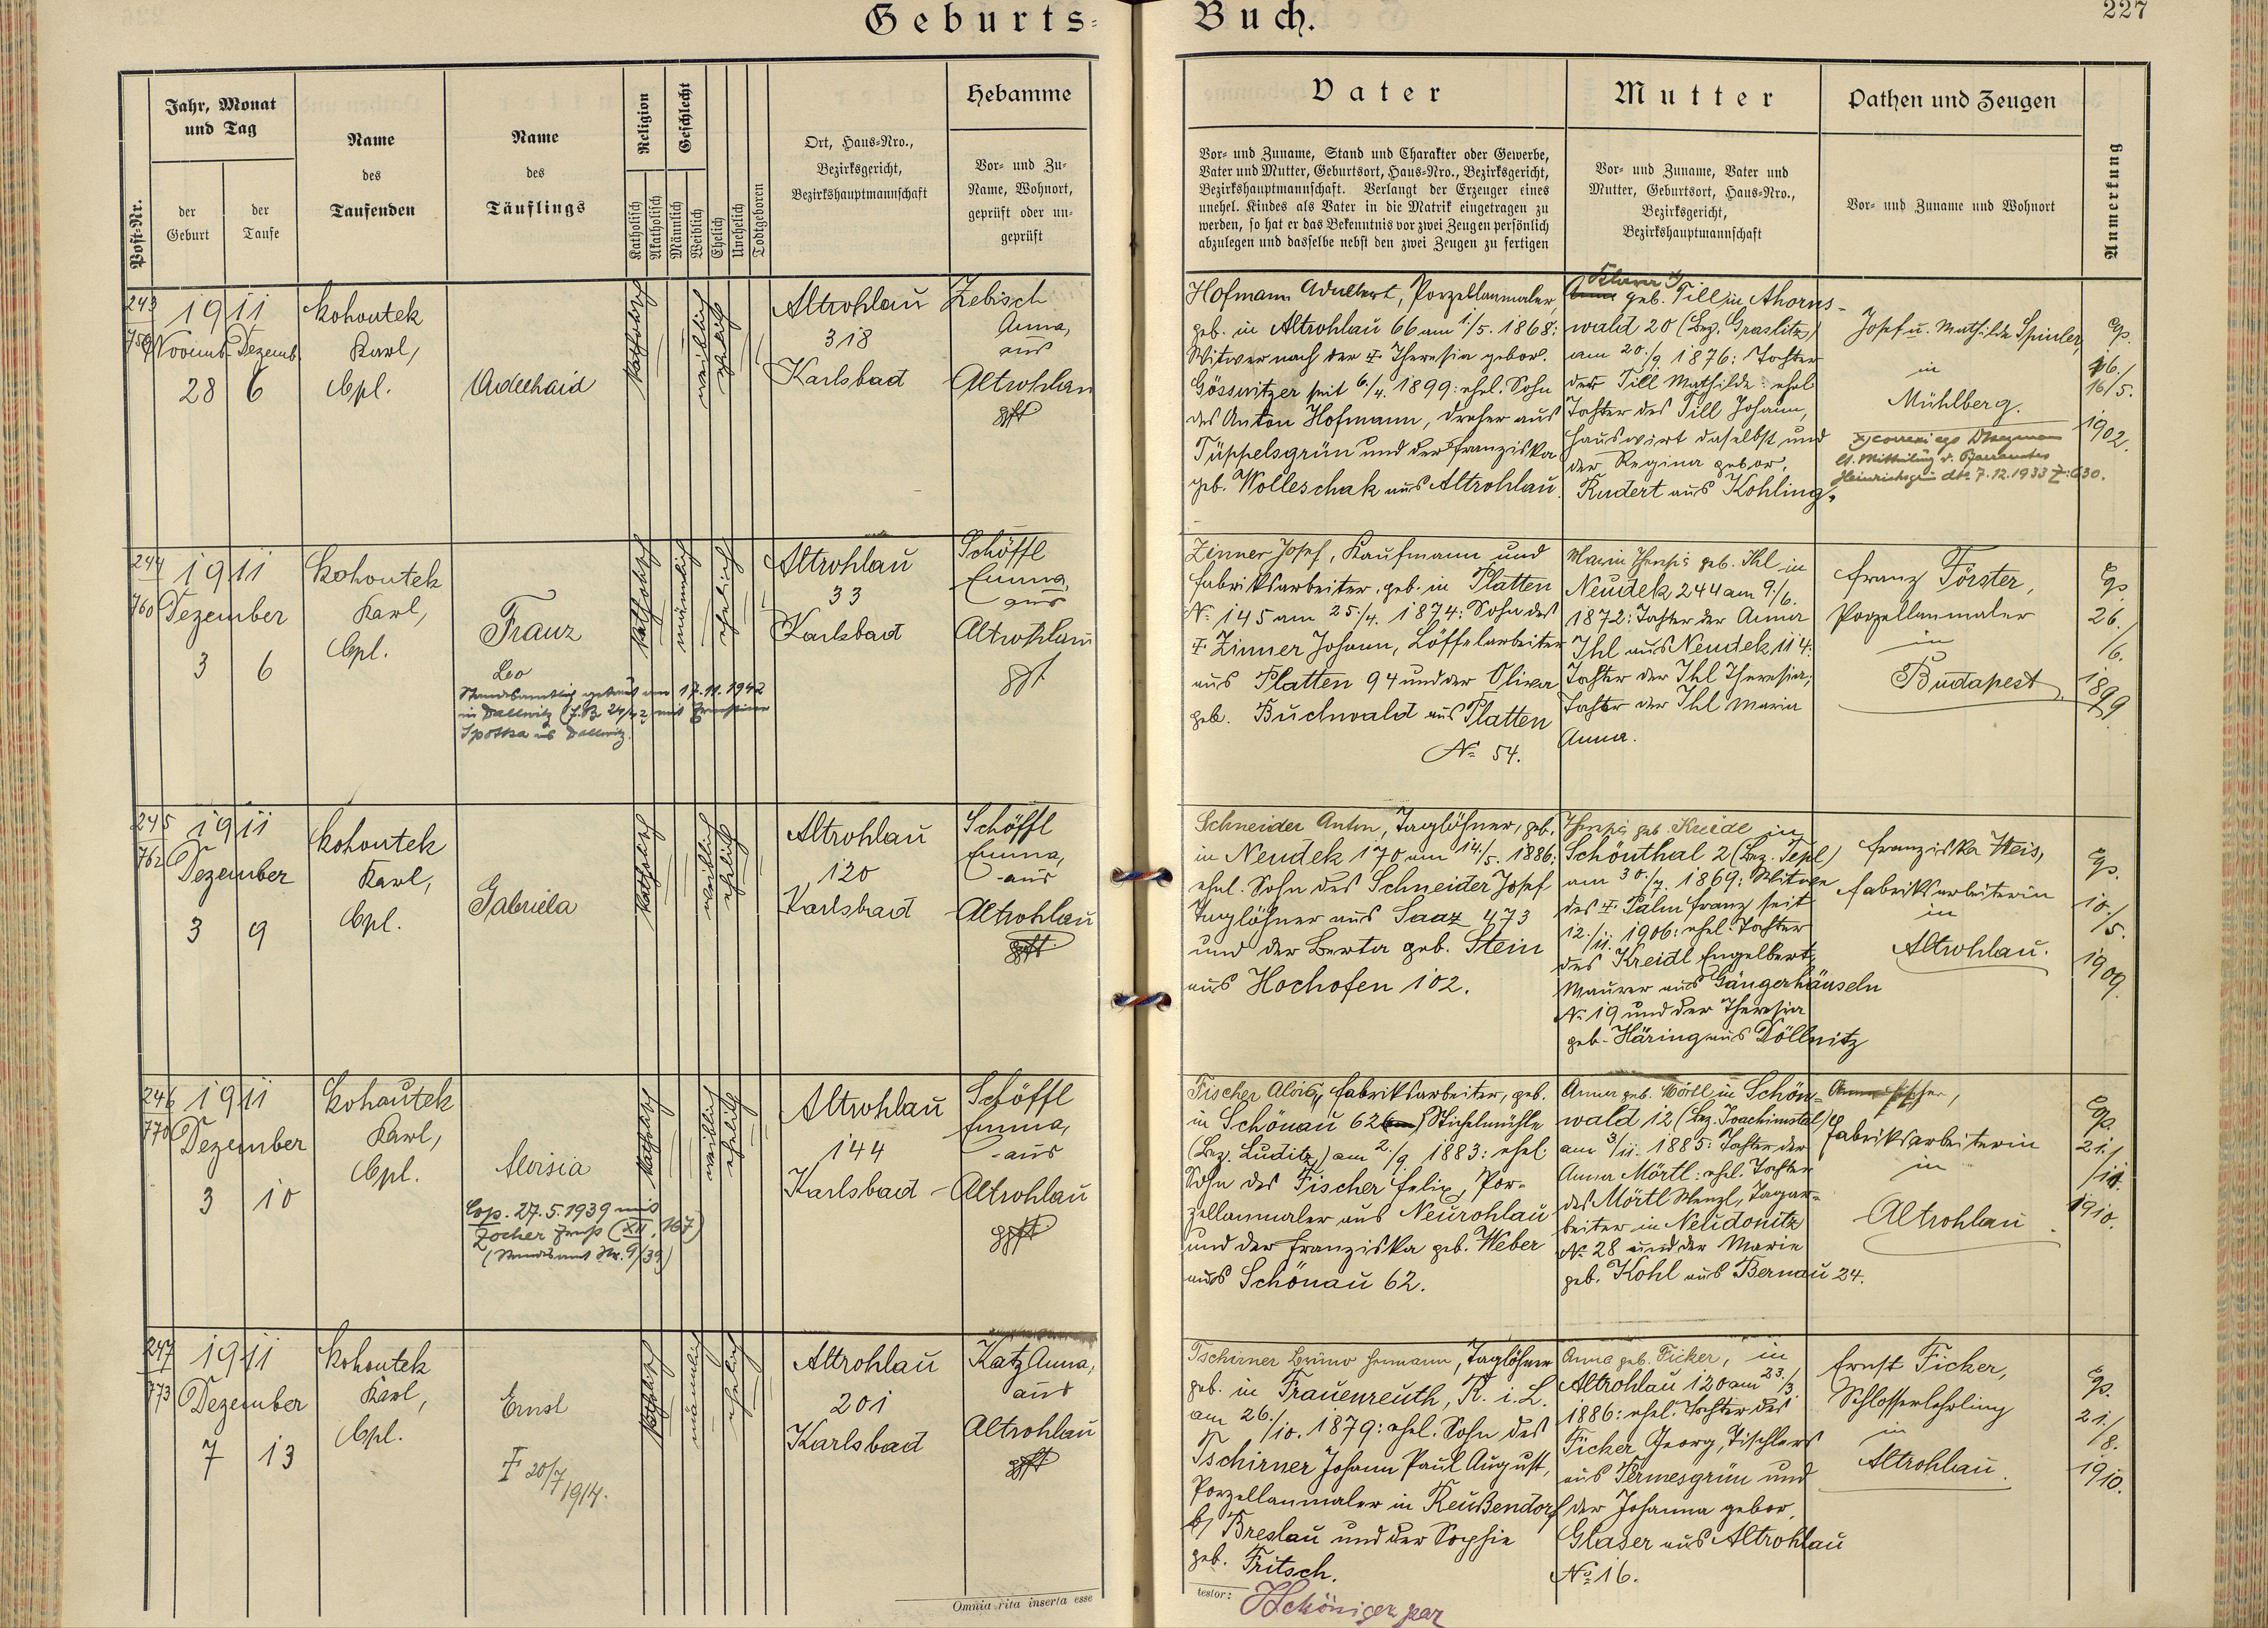 Geburts-
Buch.
227
Post-Nr.
Jahr, Monat
und Tag
der
Geburt
der
Taufe
Name
des
Taufenden
Name
des
Täuflings
Religion
Katholisch
Akatholisch
Geschlecht
Männlich
Weiblich
Ehelich
Unehelich
Todtgeboren
Ort, Haus-Nro.,
Bezirksgericht,
Bezirkshauptmannschaft
Hebamme
Vor- und Zu-
Name, Wohnort,
geprüft oder un-
geprüft
Vater
Vor- und Zuname, Stand und Charakter oder Gewerbe,
Vater und Mutter, Geburtsort, Haus-Nro., Bezirksgericht,
Bezirkshauptmannschaft. Verlangt der Erzeuger eines
unehel. Kindes als Vater in die Matrik eingetragen zu
werden, so hat er das Bekenntnis vor zwei Zeugen persönlich
abzulegen und dasselbe nebst den zwei Zeugen zu fertigen
Mutter
Vor- und Zuname, Vater und
Mutter, Geburtsort, Haus-Nro.,
Bezirksgericht,
Bezirkshauptmannschaft
Pathen und Zeugen
Vor- und Zuname und Wohnort
Anmerkung
243
759
1911
Novemb. Dezemb.
28 6
Kohoutek
Karl,
Cpl.
Adelhaid
katholisch
weiblich
ehelich
Altrohlau
318
Karlsbad
Zebisch
Anna,
aus
Altrohlau
gpft
Hofmann Adalbert, Porzellanmaler,
geb. in Altrohlau 66 am 1./5. 1868:
Witwer nach der † Theresia gebor.
Gösswitzer seit 6./4. 1899: ehel. Sohn
des Anton Hofmann, Dreher aus
Tüppelsgrün und der Franziska
geb. Wolleschak aus Altrohlau.
Klara x)
Anna geb. Till in Ahorns-
wald 20 (Bez. Graslitz)
am 20./9 1876: Tochter
der Till Mathilde: ehel
Tochter des Till Johann,
Hauswirt daselbst und
der Regina gebor.
Rudert aus Kohling.
Josef u. Mathilde Spinler,
in
Mühlberg.
lt. Mitteilung d. Pfarramtes
Heinrichsgrün dto 7.12.1933 Z: 630.
Cp.
16./
16/5.
1902.
244
760
1911
Dezember
3 6
Kohoutek
Karl,
Cpl.
Franz
Leo
Standesamtlich getraut am 17.11.1942
in Dallwitz (F.B. 24/42 mit Ernestine
aus Dallwitz.
katholisch
männlich
ehelich
Altrohlau
33
Karlsbad
Schöffl
Emma,
aus
Altrohlau
gpft
Zinner Josef, Kaufmann und
Fabriksarbeiter, geb. in Platten
No 145 am 25./4. 1874: Sohn des
† Zinner Johann, Löffelarbeiter
aus Platten 94 und der Oliva
geb. Buchwald aus Platten
No 54.
Maria Theresia geb. Ihl in
Neudek 244 am 9./6.
1872: Tochter der Anna
Ihl aus Neudek 114:
Tochter der Ihl Theresia;
Tochter der Ihl Maria
Anna.
Franz Förster,
Porzellanmaler
in
Budapest
Cp.
26.
/6.
1899
245
762
1911
Dezember
3 9
Kohoutek
Karl,
Cpl.
Gabriela
katholisch
weiblich
ehelich
Altrohlau
120
Karlsbad
Schöffl
Emma,
aus
Altrohlau
gpft
Schneider Anton, Taglöhner, geb.
in Neudek 170 am 14./5. 1886:
ehel. Sohn des Schneider Josef
Taglöhner aus Saaz 473
und der Berta geb. Stein
aus Hochofen 102.
Theresia geb. Kreidl in
Schönthal 2 (Bez. Tepl)
am 30./7. 1869: Witwe
des † Palm Franz seit
12./11. 1906: ehel. Tochter
des Kreidl Engelbert,
Maurer aus Gängerhäuseln
No 19 und der Theresia
geb. Häring aus Döllnitz
Franziska Weis,
Fabriksarbeiterin
in
Altrohlau.
Cp.
10.
/5.
1909.
246
770
1911
Dezember
3 10
Kohoutek
Karl,
Cpl.
Aloisia
Cop. 27.5.1939 mit
Zocher Franz (XII, 167)
(Standesamt Nr. 9/39)
katholisch
weiblich
ehelich
Altrohlau
144
Karlsbad
Schöffl
Emma,
aus
Altrohlau
gpft
Fischer Alois, Fabriksarbeiter, geb.
in Schönau 62 Stichlmühle
(Bez. Luditz) am 2./9. 1883: ehel:
Sohn des Fischer Felix, Por-
zellanmaler aus Neurohlau
und der Franziska geb. Weber
aus Schönau 62.
Anna geb. Mörtl in Schön-
wald 12 (Bez. Joachimstal)
am 3/11. 1885: Tochter der
Anna Mörtl: ehel. Tochter
des Mörtl Wenzl, Tagar-
beiter in Neudonitz
No 28 und der Marie
geb. Kohl aus Bernau 24.
Anna Fischer,
Fabriksarbeiterin
in
Altrohlau
Cp.
21./
/10.
1910.
247
773
1911
Dezember
7 13
Kohoutek
Karl,
Cpl.
Ernst
† 20/7 1914.
katholisch
männlich
ehelich
Altrohlau
201
Karlsbad
Katz Anna,
aus
Altrohlau
gpft
Tschirner Bruno Hermann, Taglöhner
geb. in Frauenreuth, R. i. L.
am 26./10. 1879: ehel. Sohn des
Tschirner Johann Paul August,
Porzellanmaler in Reußendorf
b/ Breslau und der Sophie
geb. Fritsch.
Anna geb. Ficker, in
Altrohlau 120 am 23./3.
1886: ehel. Tochter des
Ficker Georg, Tischlers
aus Permesgrün und
der Johanna gebor.
Glaser aus Altrohlau
No 16.
Ernst Ficker,
Schlosserlehrling
in
Altrohlau.
Cp.
21./
8.
1910.
Omnia rita inserta esse
testor: